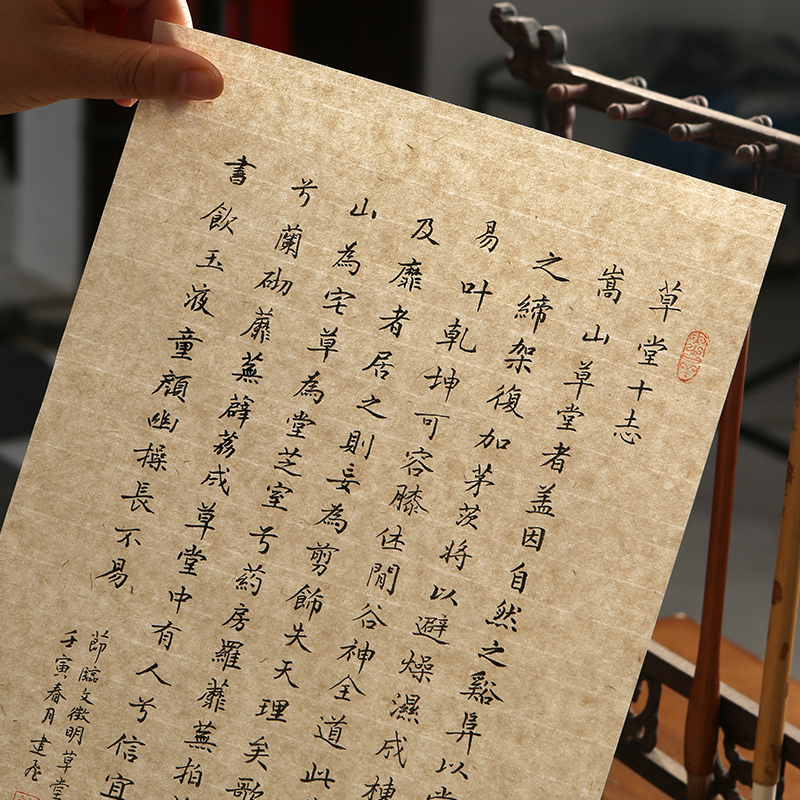 草堂十志
嵩山草堂者盖因自然之谿阜以
之締架復加茅茨将以避燥濕成棟
易叶乾坤可容膝休閒谷神全道此
及靡者居之則妄為剪飾失天理矣歌
山為宅草為堂芝室兮葯房羅蘼蕪拍
兮蘭砌蘼蕪薜荔成草堂中有人兮信宜
書飲玉液童顔幽操長不易
節臨文徵明草堂
壬寅春月建